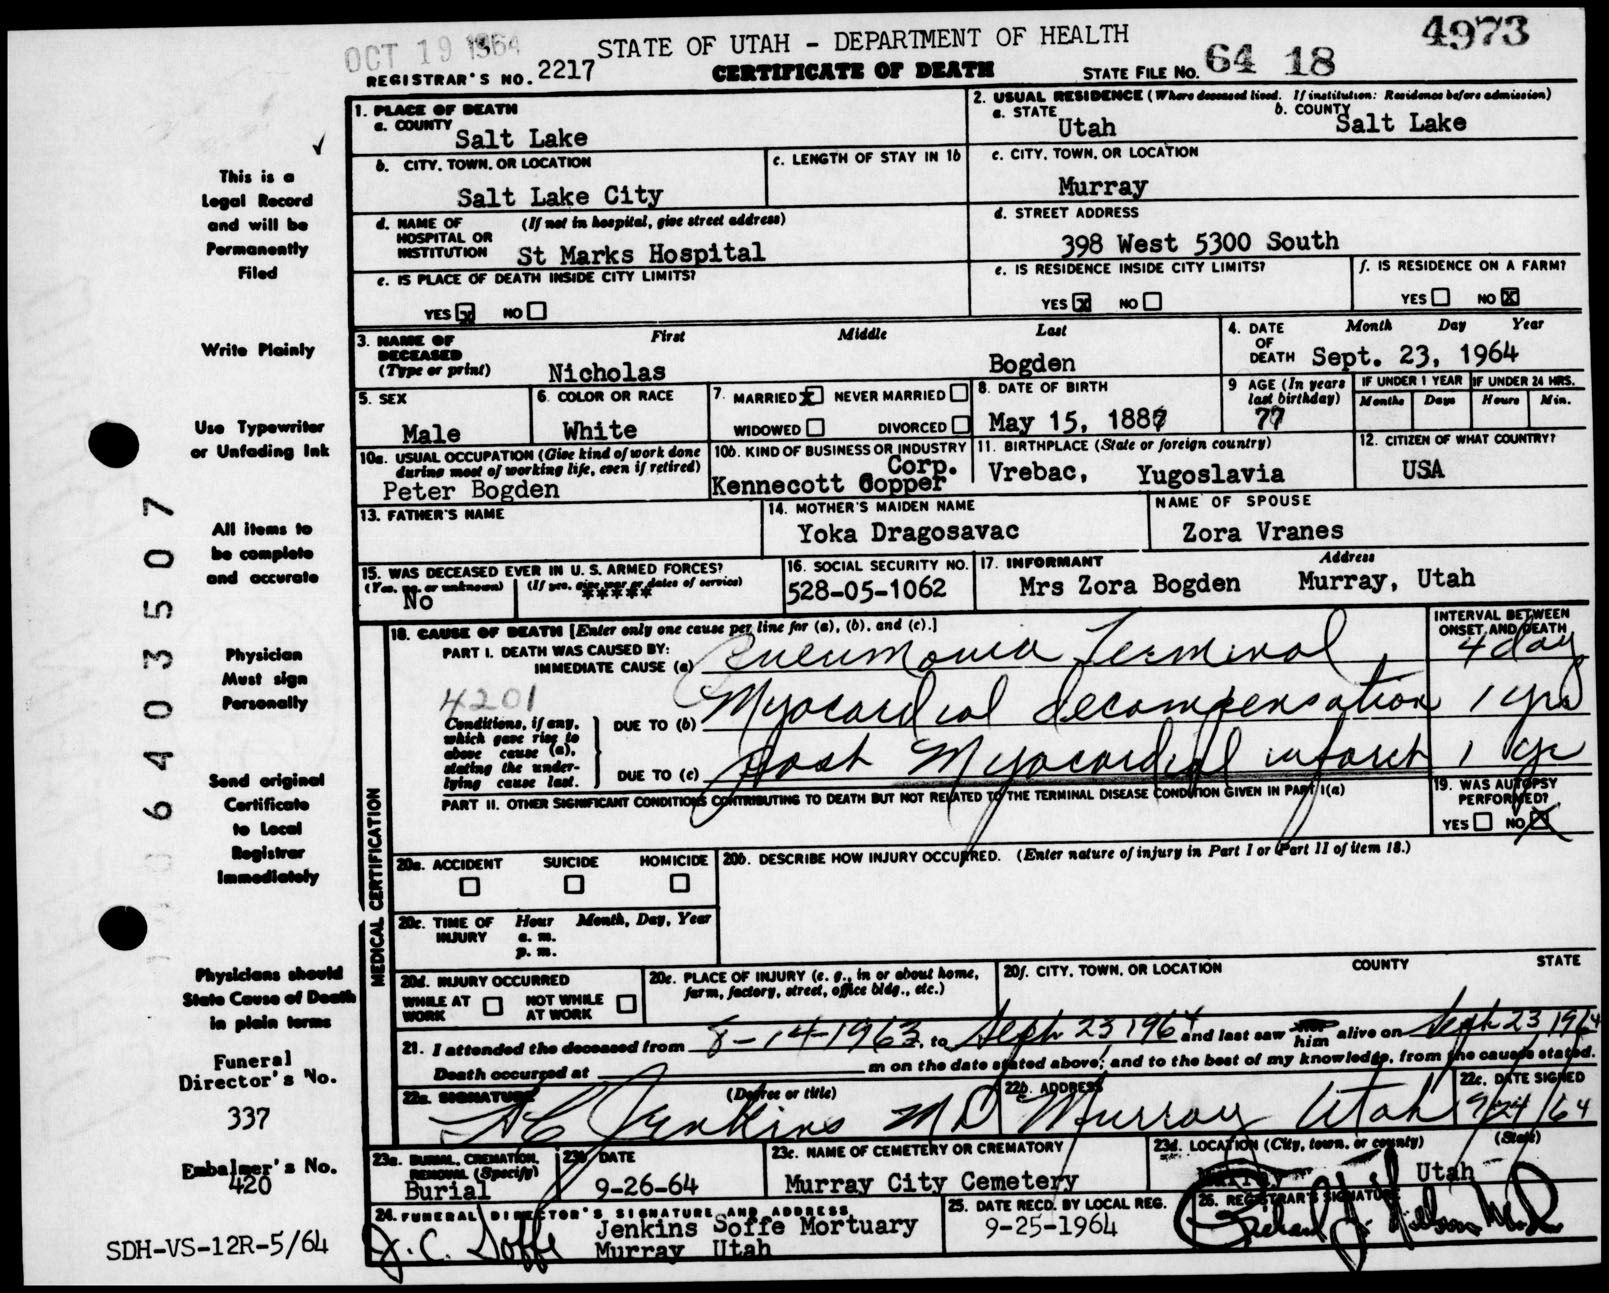 OCT 19 1964
STATE OF UTAH - DEPARTMENT OF HEALTH
4973
REGISTRAR'S NO. 2217
CERTIFICATE OF DEATH
STATE FILE NO. 64 18
1. PLACE OF DEATH
a. COUNTY
Salt Lake
2. USUAL RESIDENCE (Where deceased lived. If institution: Residence before admission)
a. STATE
Utah
b. COUNTY
Salt Lake
b. CITY, TOWN, OR LOCATION
Salt Lake City
c. LENGTH OF STAY IN 1b
c. CITY, TOWN, OR LOCATION
Murray
d. NAME OF HOSPITAL OR INSTITUTION
(If not in hospital, give street address)
St Marks Hospital
d. STREET ADDRESS
398 West 5300 South
e. IS PLACE OF DEATH INSIDE CITY LIMITS?
YES X NO
e. IS RESIDENCE INSIDE CITY LIMITS?
YES X NO
f. IS RESIDENCE ON A FARM?
YES NO X
3. NAME OF DECEASED
(Type or print)
First Middle Last
Nicholas Bogden
4. DATE OF DEATH
Month Day Year
Sept. 23, 1964
5. SEX
Male
6. COLOR OR RACE
White
7. MARRIED X NEVER MARRIED
WIDOWED DIVORCED
8. DATE OF BIRTH
May 15, 1887
9 AGE (In years last birthday)
77
IF UNDER 1 YEAR
Months Days
IF UNDER 24 HRS.
Hours Min.
10a. USUAL OCCUPATION (Give kind of work done during most of working life, even if retired)
Peter Bogden
10b. KIND OF BUSINESS OR INDUSTRY
Corp.
Kennecott Copper
11. BIRTHPLACE (State or foreign country)
Vrebac, Yugoslavia
12. CITIZEN OF WHAT COUNTRY?
USA
13. FATHER'S NAME
14. MOTHER'S MAIDEN NAME
Yoka Dragosavac
NAME OF SPOUSE
Zora Vranes
15. WAS DECEASED EVER IN U. S. ARMED FORCES?
(Yes, no, or unknown) (If yes, give war or dates of service)
No *****
16. SOCIAL SECURITY NO.
528-05-1062
17. INFORMANT Address
Mrs Zora Bogden Murray, Utah
MEDICAL CERTIFICATION
18. CAUSE OF DEATH [Enter only one cause per line for (a), (b), and (c).]
INTERVAL BETWEEN ONSET AND DEATH
PART I. DEATH WAS CAUSED BY:
IMMEDIATE CAUSE (a) Pneumonia Terminal 4 day
4201
Conditions, if any, which gave rise to above cause (a), stating the underlying cause last.
DUE TO (b) Myocardial decompensation 1 yrs
DUE TO (c) post Myocardial infarct 1 yr
PART II. OTHER SIGNIFICANT CONDITIONS CONTRIBUTING TO DEATH BUT NOT RELATED TO THE TERMINAL DISEASE CONDITION GIVEN IN PART I(a)
19. WAS AUTOPSY PERFORMED?
YES NO X
20a. ACCIDENT SUICIDE HOMICIDE
20b. DESCRIBE HOW INJURY OCCURRED. (Enter nature of injury in Part I or Part II of item 18.)
20c. TIME OF INJURY
Hour Month, Day, Year
a. m.
p. m.
20d. INJURY OCCURRED
WHILE AT WORK NOT WHILE AT WORK
20e. PLACE OF INJURY (e. g., in or about home, farm, factory, street, office bldg., etc.)
20f. CITY, TOWN, OR LOCATION COUNTY STATE
21. I attended the deceased from 8-14-1963, to Sept 23 1964 and last saw him alive on Sept 23 1964
Death occurred at m on the date stated above; and to the best of my knowledge, from the causes stated.
22a. SIGNATURE (Degree or title)
Jenkins MD
22b. ADDRESS
Murray Utah
22c. DATE SIGNED
9/24/64
23a. BURIAL, CREMATION, REMOVAL (Specify)
Burial
23b DATE
9-26-64
23c. NAME OF CEMETERY OR CREMATORY
Murray City Cemetery
23d. LOCATION (City, town, or county) (State)
Murray Utah
24. FUNERAL DIRECTOR'S SIGNATURE AND ADDRESS
J. C. Soffe
Jenkins Soffe Mortuary
Murray Utah
25. DATE RECD. BY LOCAL REG.
9-25-1964
26. REGISTRAR'S SIGNATURE
This is a
Legal Record
and will be
Permanently
Filed
Write Plainly
Use Typewriter
or Unfading Ink
All items to
be complete
and accurate
Physician
Must sign
Personally
Send original
Certificate
to Local
Registrar
Immediately
Physicians should
State Cause of Death
in plain terms
Funeral
Director's No.
337
Embalmer's No.
420
SDH-VS-12R-5/64
6403507